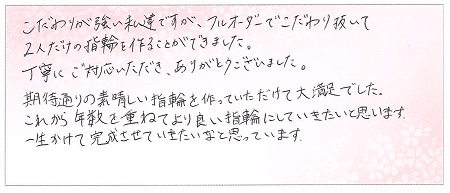 こだわりが強い私達ですが、フルオーダーでこだわり抜いて
2人だけの指輪を作ることができました。
丁寧にご対応いただき、ありがとうございました。
期待通りの素晴しい指輪を作っていただけて大満足でした。
これから年数を重ねてより良い指輪にしていきたいと思います。
一生かけて完成させていきたいなと思っています。